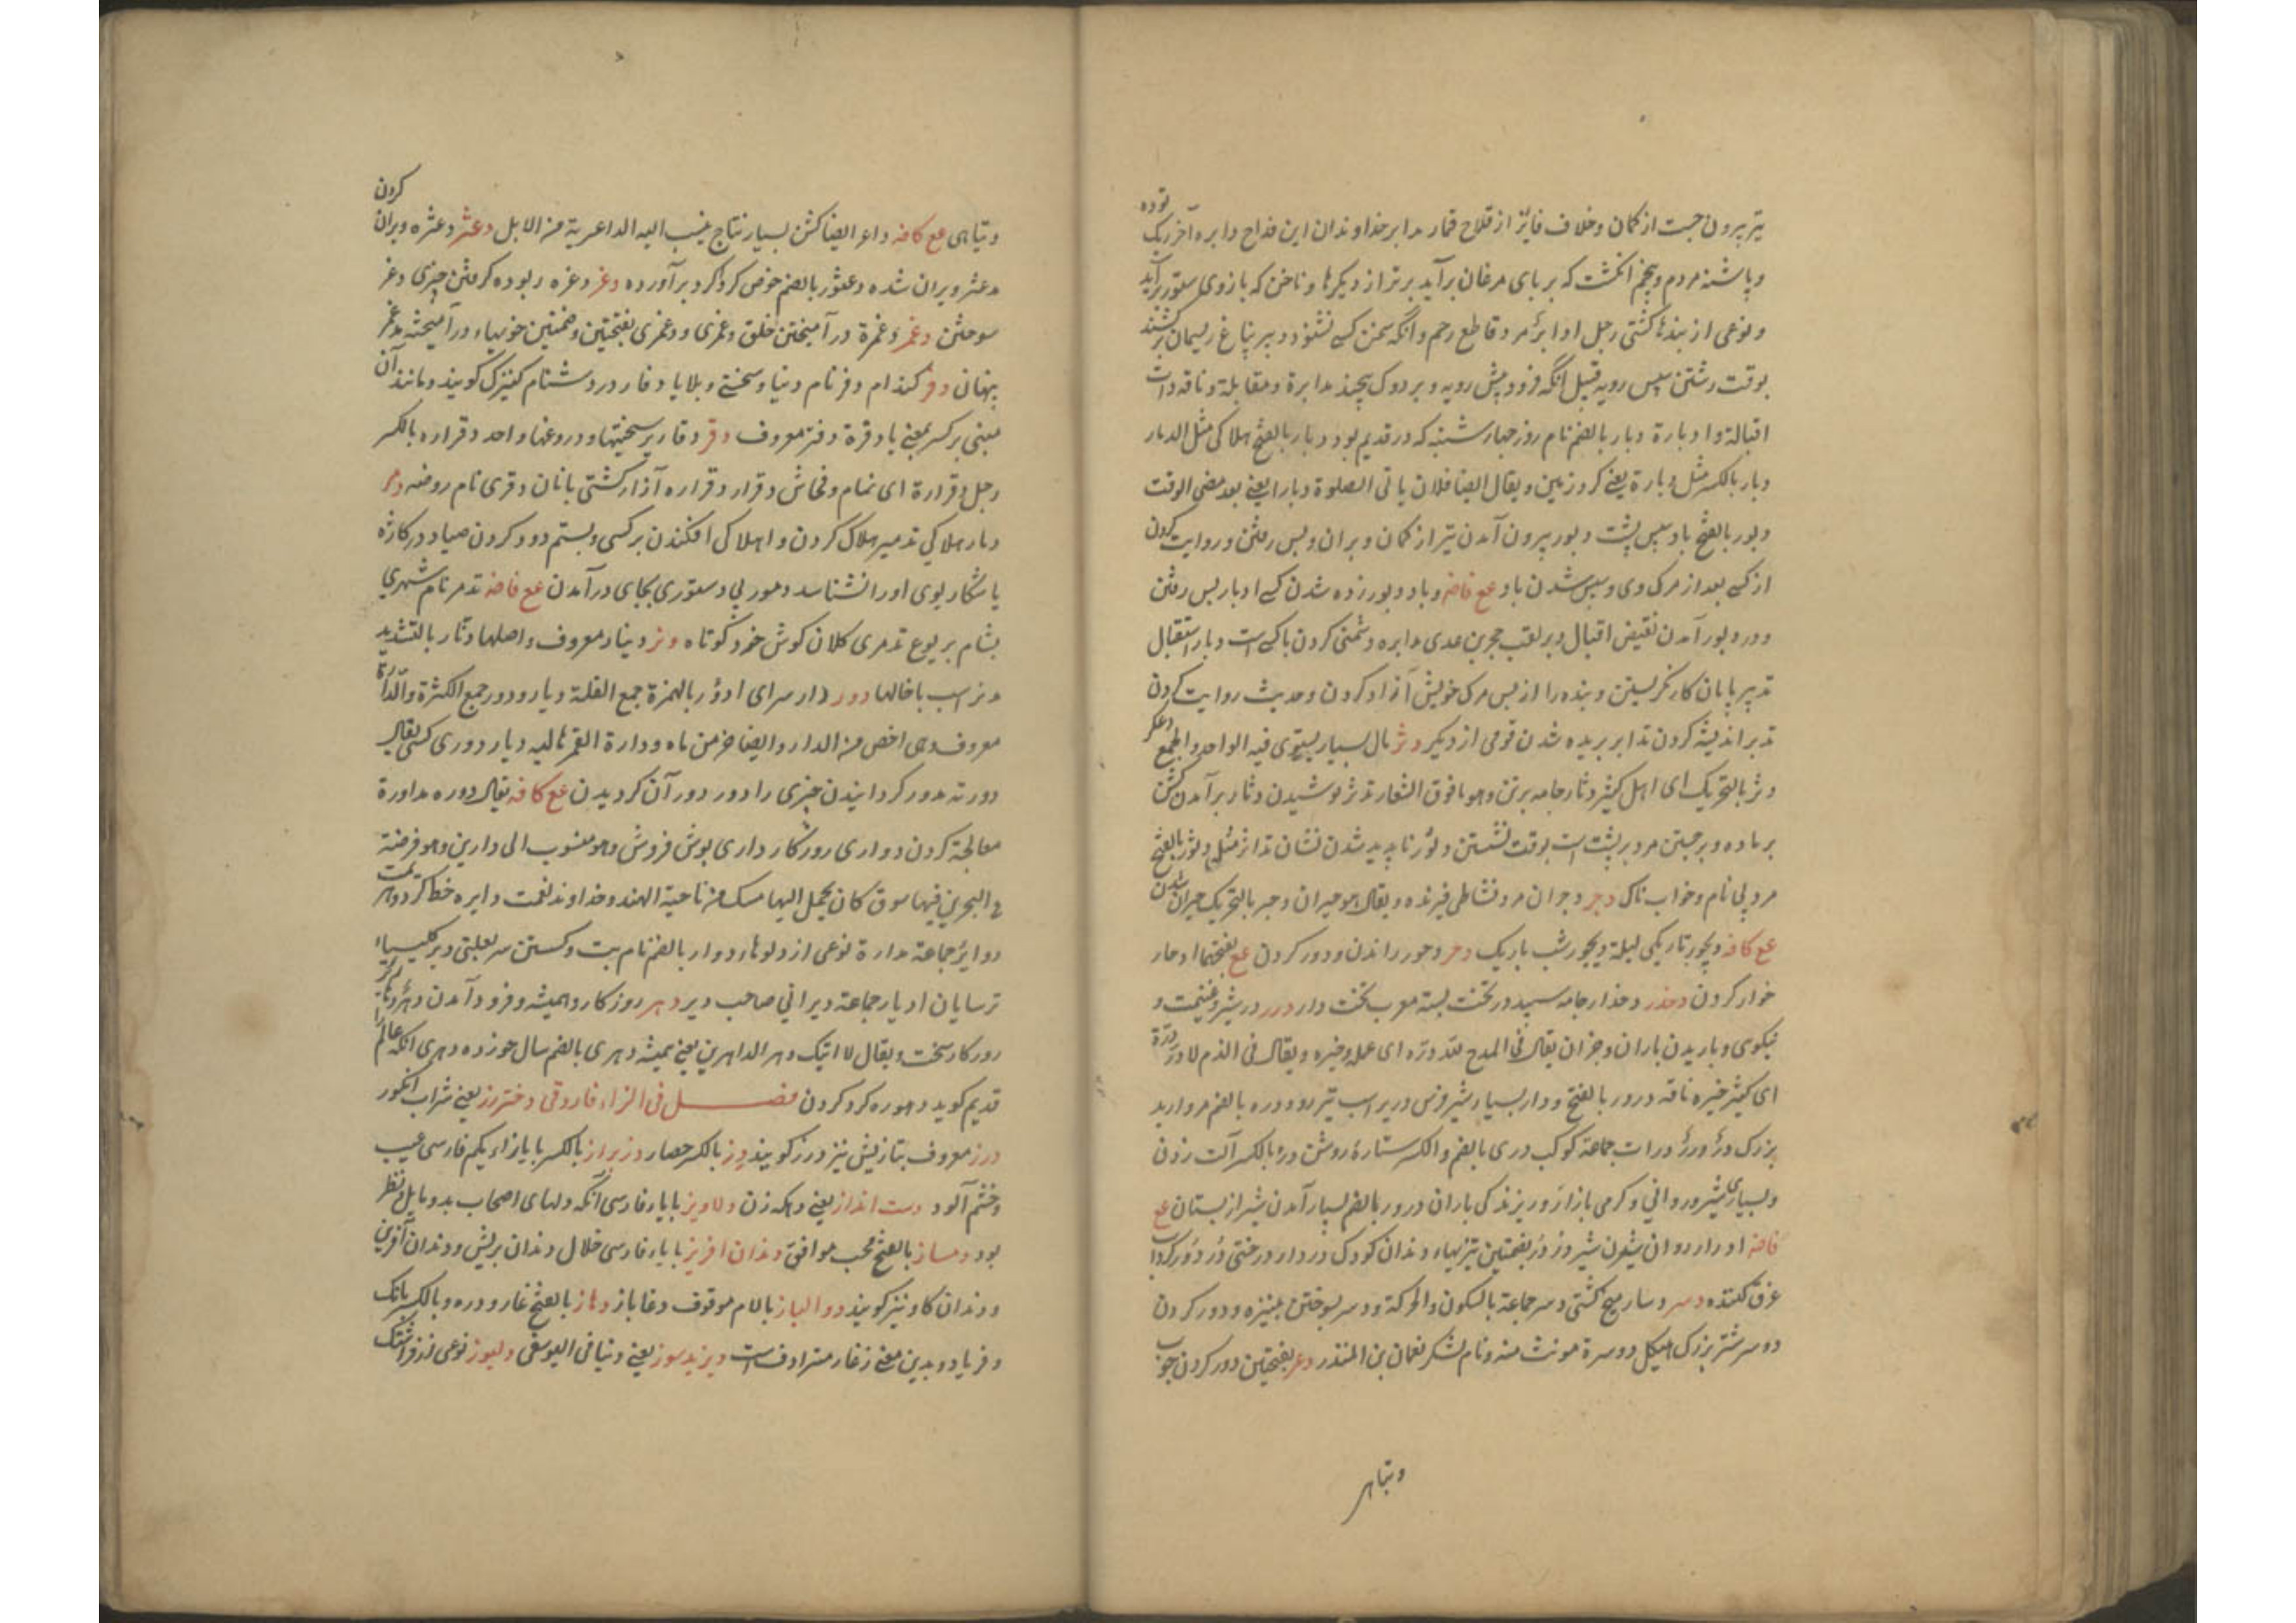 تیر بیرون جست از کمان و خلاف فایز از قداح قمار مدابر خداوندان این قداح دابره آخر ریک توده
و پاشنه مردم و پنجم انگشت که بر پای مرغان برآید برتر از دیگرها و ناخن که بازوی ستور برآید
و نوعی از بندها کشتی رجل ادابر مرد قاطع رحم و آنکه سخن کسی نشنود دبیر پناغ ریسمان برکشند
بوقت رشتن سپس رویه قبیل آنکه فرود پیش رویه و بر دوک پیچند مدابرة و مقابلة و ناقه ذات
اقبالة و ادبارة دبار بالضم نام روز چهارشنبه که در قدیم بود دبار بالفتح هلاکی مثل الدمار
دبار بالکسر مثل دبارة یعنی کرد زمین و یقال ایضا فلان یاتی الصلوة دبارا یعنی بعد مضی الوقت
دبور بالفتح باد سپس پشت دبور بیرون آمدن تیر از کمان و بران و پس رفتن و روایت کردن
از کسی بعد از مرگ وی و سپس شدن باد مع فاضه و باد دبور زده شدن کسی ادبار پس رفتن
و در دبور آمدن نقیض اقبال دبر لقب حجر بن عدی مدابره دشمنی کردن با کسی است دبار استقبال
تدبیر پایان کار نگریستن و بنده را از پس مرگ خویش آزاد کردن و حدیث روایت کردن
تدبر اندیشه کردن تدابر بریده شدن قومی از دیگر دثر مال بسیار یستوی فیه الواحد و الجمع
دثر بالتحریک ای اهل کثیر دثار جامه برتن و هو ما فوق الشعار تدثر پوشیدن دثار و برآمدن گشن
بر ماده و برجستن مرد بر پشت اسب بوقت نشستن دثور ناپدید شدن نشان تداثر مثله دثور بالفتح
مرد بی نام و خواب ناک دجر دجران مرد نشاطی فیرنده و یقال هو حیران دجر بالتحریک حیران شدن
مع کافه دیجور تاریکی لیلة دیجور شب باریک دحر دحور راندن و دور کردن مع بفتحهما ادحار
خوار کردن دخدر دخدار جامه سپید در تخت بسته معرب تخت دار درر در شیر و غنیمت و
نیکویی و باریدن باران و جز آن یقال فی المدح لله درّه ای عمله و خیره و یقال فی الذم لا درّ درّه
ای کثیر خیره ناقه درور بالفتح و دار بسیار شیر فرس دریر اسب تیز رو دره بالضم مروارید
بزرک درّ و درر و درات جماعة کوکب دری بالضم و الکسر ستارهٔ روشن دره بالکسر آلت زدن
و بسیاری شیر و روانی و گرمی بازار و ریزندگی باران درور بالضم بسیار آمدن شیر از پستان مع
فاضه ادرار روان شدن شیر و زدر بفتحتین تیزیهاء دندان کودک دردار درختی دردور گرداب
غرق کننده دسر دسار میخ کشتی دسر جماعة بالسکون و الحرکة و دسر بسوختن بنیزه و دور کردن
دوسر شتر بزرک هیکل دوسرة مونث منه و نام لشکر نعمان بن المنذر دعر بفتحتین دور کردن چوب
و تباهی
و تباهی مع کافه داعر ایضا کشن بسیار نتاج ینسب الیه الداعریة من الابل دعثر دعثره ویران کردن
مدعثر ویران شده دعثور بالضم حوض کرد کرد برآورده دغر دغره ربوده گرفتن چیزی دغر
سوختن دغمر دغمرة درآمیختن خلق دغمری و دغمری بفتحتین و ضمتین خویهاء درآمیخته مدغمر
پنهانی دفر کندام دفر نام دنیا و سختی و بلایا دفار در دشنام کنیزک گویند و مانند آن
مبنی بر کسر بمعنی یا دفرة دفتر معروف دقر دقاریر سختیها و دروغها واحد دقراره بالکسر
رجل دقرارة ای نمام و فحاش دقرار دقراره آزار کشتی بانان دقری نام روضه دمر
دمار هلاکی تدمیر هلاک کردن و اهلاکی افکندن بر کسی و بستم دود کردن صیاد در کازه
یا شکار بوی او را نشناسد دمور بی دستوری بجای درآمدن مع فاضه تدمر نام شهری
بشام یربوع تدمری کلان گوش خرد کوتاه دنر دینار معروف و اصلها دنار بالتشدید
مدنر اسب با خالها دور دار سرای ادؤر بالهمزة جمع القلة دیار و دور جمع الکثرة و الدارة
معروف و هی اخص من الدار و ایضا خرمن ماه و دارة القمر هاله دیار دوری کسی یقال
دورته مدور گردانیدن چیزی را دور دور آن گردیدن مع کافه یقال دوره مداورة
معالجة کردن دواری روزگار داری بوی فروش و هو منسوب الی دارین و هو فرضة
ع البحرین فیها سوق کان یحمل الیها مسک من ناحیة الهند و خداوند نعمت دایره خط گرد دوایر
دوایر جماعة مدارة نوعی از دلوها دوار بالضم نام بت و گشتن سر بعلتی دیر کلیسیاء
ترسایان ادیار جماعة دیرانی صاحب دیر دهر روزگار و همیشه و فرود آمدن
روزگار سخت و یقال لا اتیک دهر الداهرین یعنی همیشه دهری بالضم سال خورده دهری آنکه عالم
قدیم گوید دهوره گرد کردن فصـل فی الزاء فاروقی دختر رز یعنی شراب انگور
درز معروف بتازیش نیز درز گویند دز بالکسر حصار دزبراز بالکسر با یا زاء یکم فارسی عیب
و خشم آلود دست انداز یعنی رهزن دلاویز با یاء فارسی آنکه دلهای اصحاب بدو مایل و منتظر
بود دمساز بالفتح محب موافق دندان افریز با یاء فارسی خلال دندان بریش و دندان آفرین
و دندان کاو نیز گویند دوالباز بالام موقوف دغاباز دهاز بالفتح غار و دره و بالکسر بانک
و فریاد و بدین معنی زغار مترادف است دیر ندیسوز یعنی دنیا فی الیوسفی دلیوز نوعی از